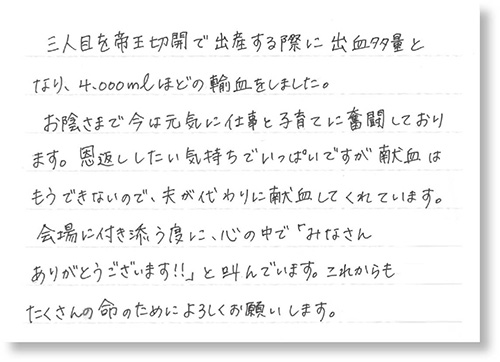 三人目を帝王切開で出産する際に出血多量と
なり、4,000mlほどの輸血をしました。
お陰さまで今は元気に仕事と子育てに奮闘しており
ます。恩返ししたい気持ちでいっぱいですが献血は
もうできないので、夫が代わりに献血してくれています。
会場に付き添う度に、心の中で「みなさん
ありがとうございます!!」と叫んでいます。これからも
たくさんの命のためによろしくお願いします。